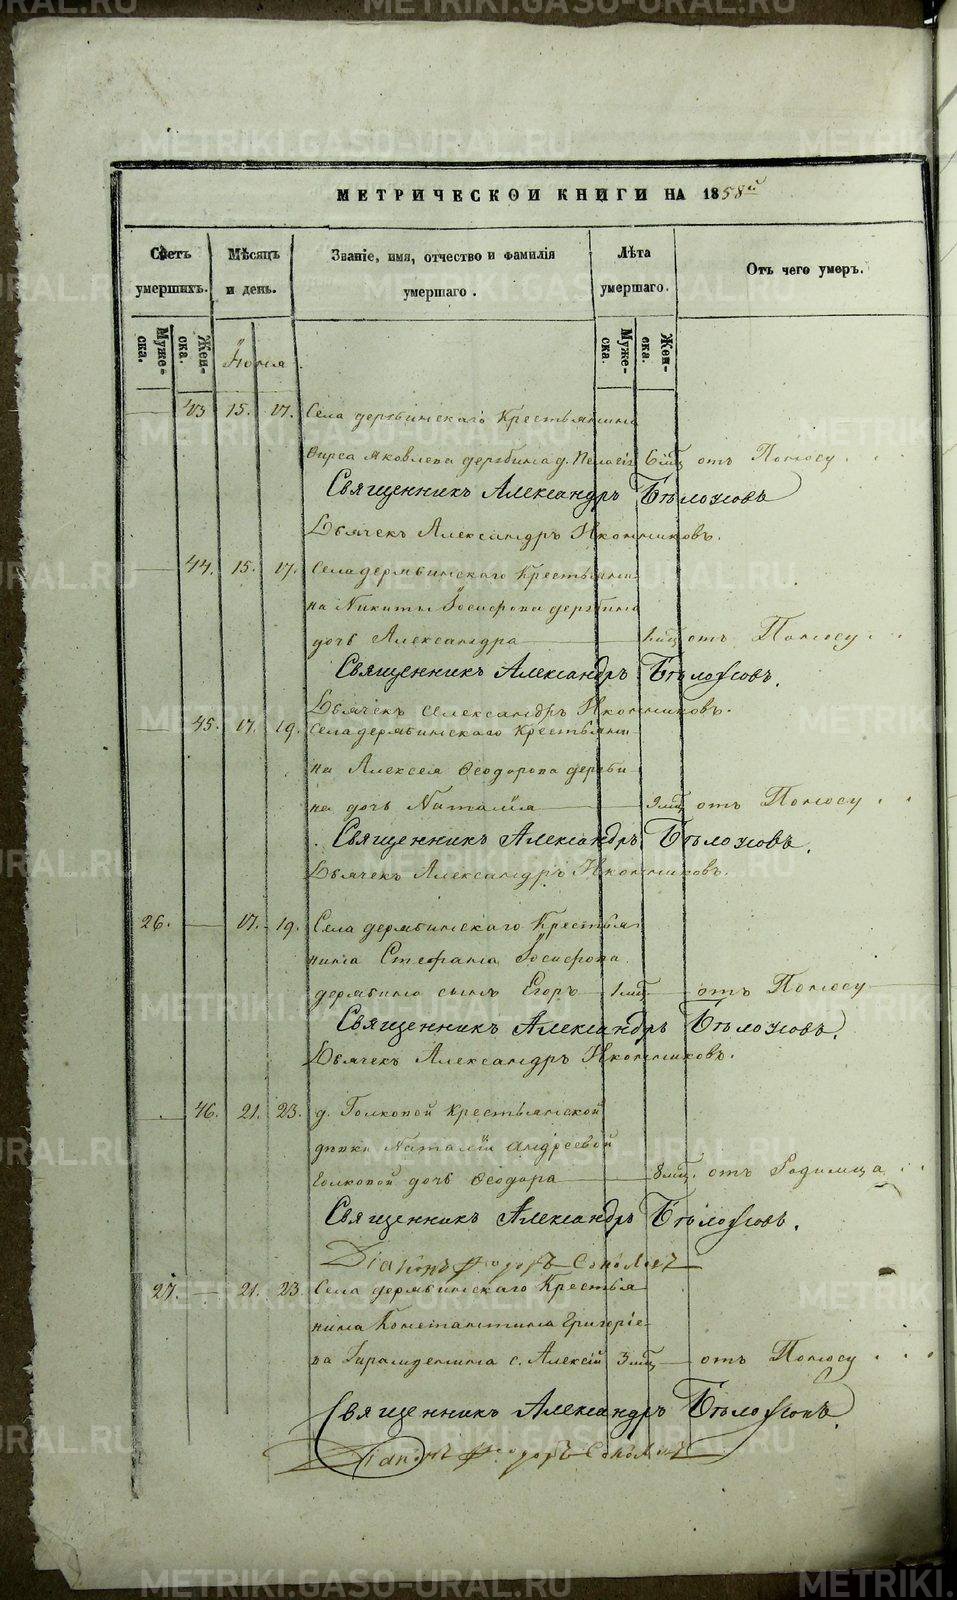 МЕТРИЧЕСКОЙ КНИГИ НА 1858й
Счетъ умершихъ.
Мѣсяцъ и день.
Званіе, имя, отчество и фамилія умершаго.
Лѣта умершаго.
Отъ чего умеръ.
Мужеска. Женска.
Мужеска. Женска.
Іюня
— 43 15. 17. Села дерябинскаго Крестьянина
Фирса Яковлева дерябина д. Пелагія 6 мц отъ Поносу
Священникъ Александръ Бѣлоусовъ
Дьячекъ Александръ Иконниковъ.
— 44. 15. 17. Села дерябинскаго Крестьяни-
на Никиты Іосифова дерябина
дочь Александра — мц отъ Поносу
Священникъ Александръ Бѣлоусовъ.
Дьячекъ Александръ Иконниковъ.
— 45. 17. 19. Села дерябинскаго Крестьяни-
на Алексея Ѳеодорова деряби-
на дочь Наталія — 9 мц отъ Поносу
Священникъ Александръ Бѣлоусовъ.
Дьячекъ Александръ Иконниковъ.
26. — 17. 19. Села дерябинскаго Крестья-
нина Стефана Іосифова
дерябина сынъ Егоръ — 1 мц — отъ Поносу
Священникъ Александръ Бѣлоусовъ.
Дьячекъ Александръ Иконниковъ.
— 46. 21. 23. д. Голковой Крестьянской
дѣвки Наталіи Андреевой
Голковой дочь Ѳеодора — 8 мц. отъ Родимца
Священникъ Александръ Бѣлоусовъ.
Діаконъ Ѳеодоръ Соколовъ
27. — 21. 23. Села дерябинскаго Крестья-
нина Константина Григорie-
ва с. Алексій 3 мц — отъ Поносу
Священникъ Александръ Бѣлоусовъ
Діаконъ Ѳеодоръ Соколовъ
METRIKI.GASO-URAL.RU